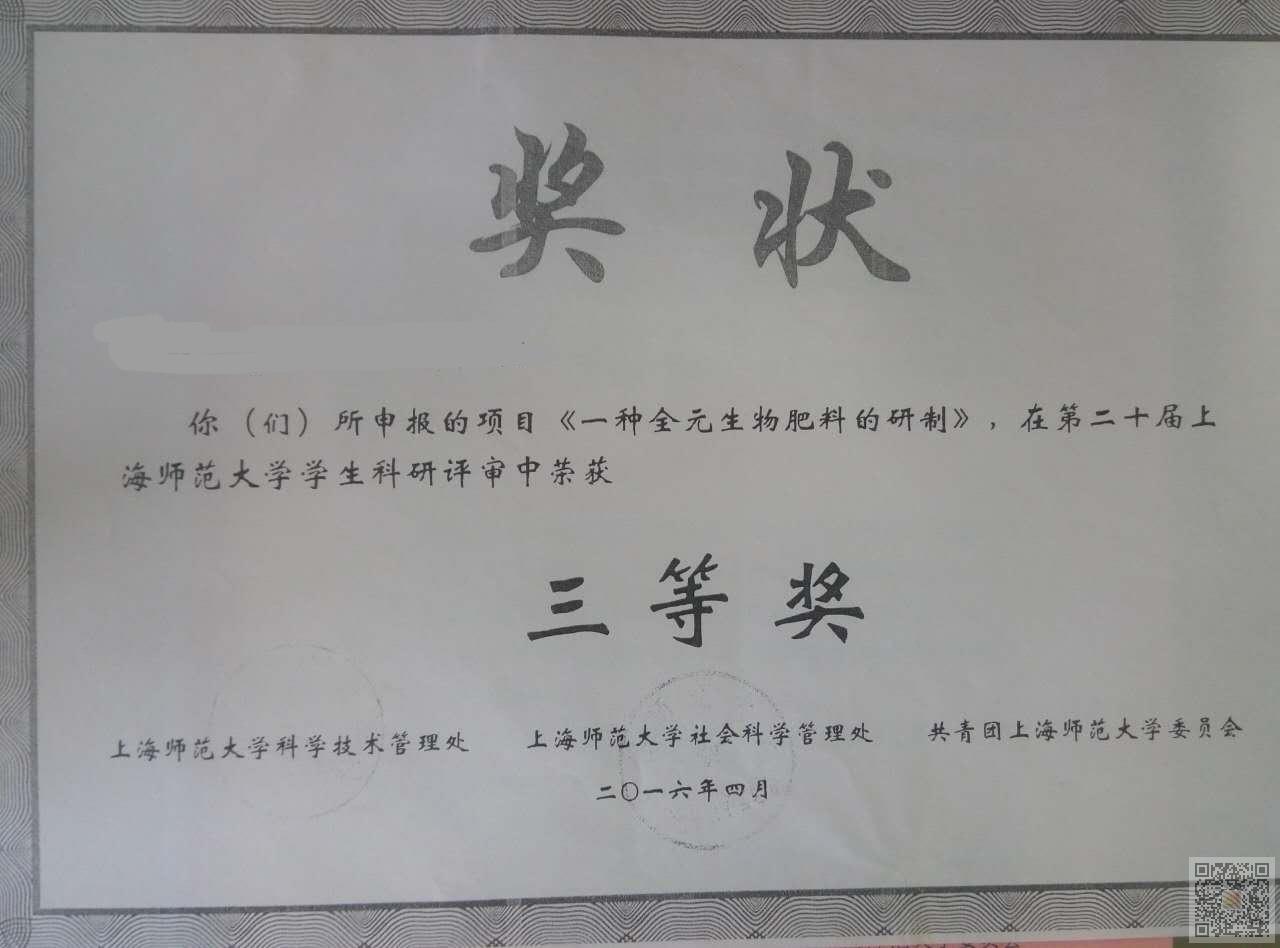 奖状
你（们）所申报的项目《一种全元生物肥料的研制》，在第二十届上
海师范大学学生科研评审中荣获
三等奖
上海师范大学科学技术管理处 上海师范大学社会科学管理处 共青团上海师范大学委员会
二〇一六年四月